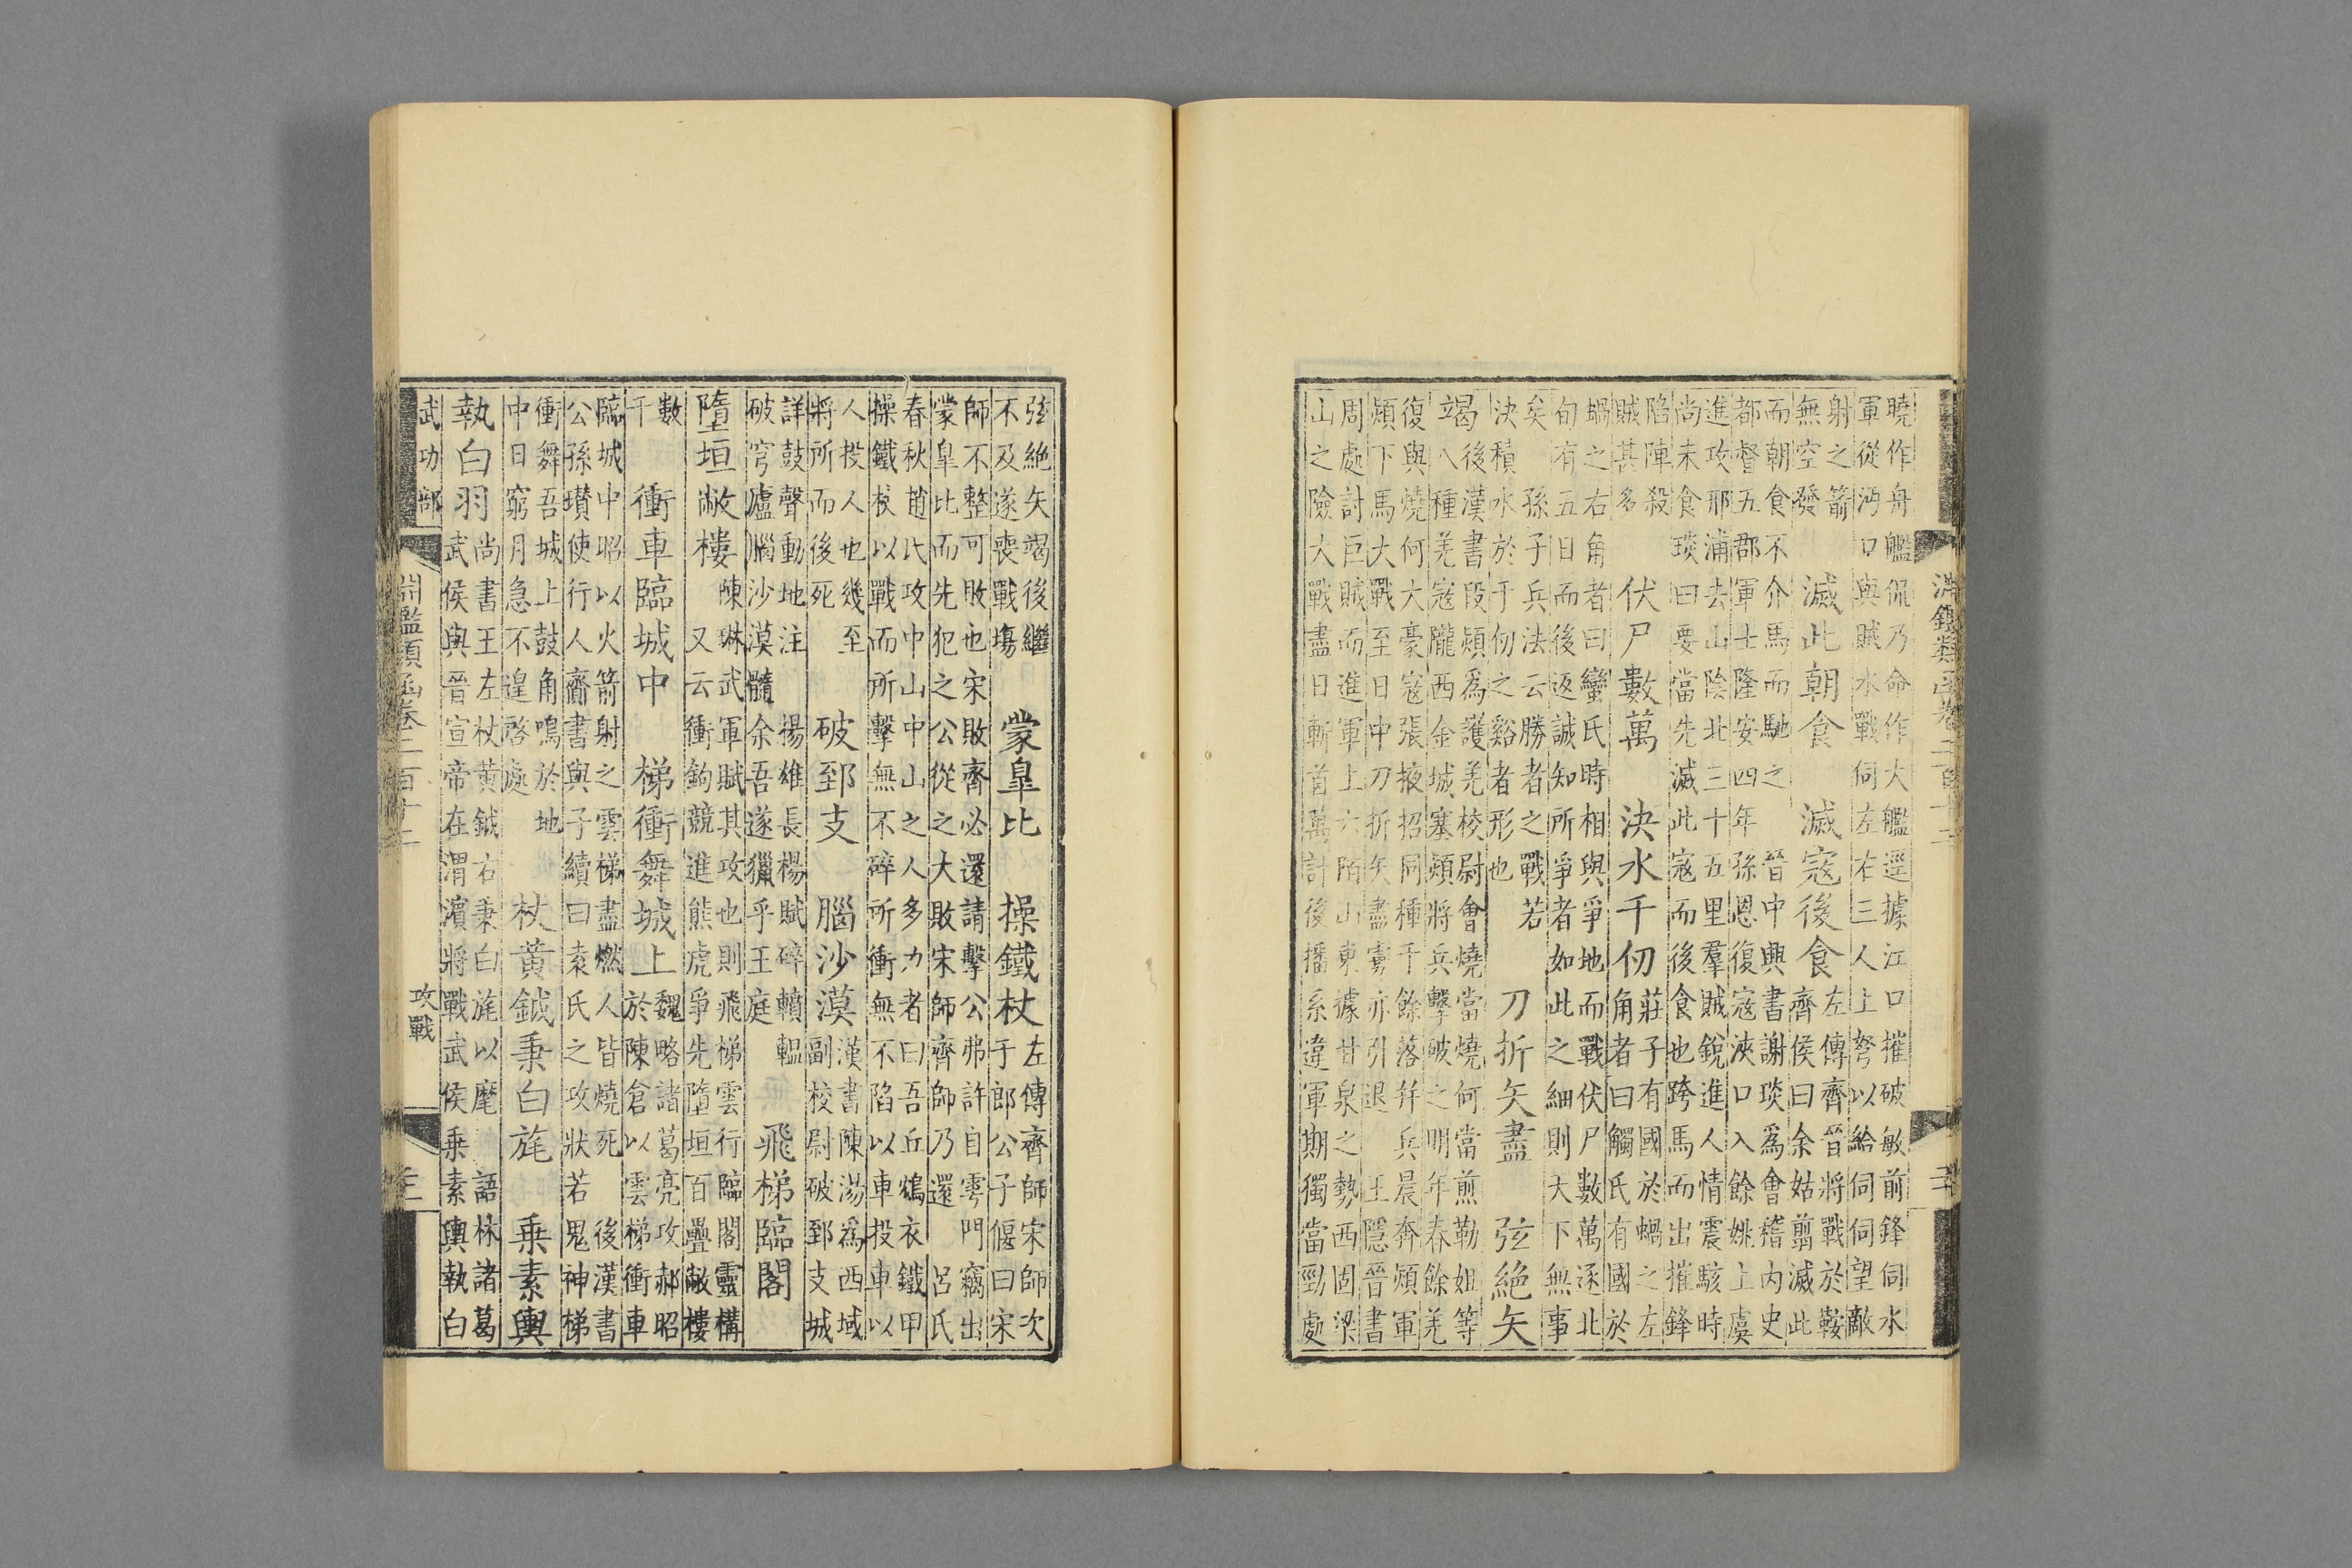 淵鑑類函卷二百十二
曉作舟艦侃乃命作大艦逕據江口摧破敏前鋒伺水
軍從沔口與賊水戰伺左右三人上弩以給伺伺望敵
射之箭
無空發
滅此朝食 滅寇後食
左傳齊晉將戰於鞍
齊侯曰余姑翦滅此
而朝食不介馬而馳之 晉中興書謝琰爲會稽内史
都督五郡軍士隆安四年孫恩復寇浹口入餘姚上虞
進攻邢浦去山陰北三十五里羣賊銳進人情震駭時
尚未食琰曰要當先滅此寇而後食也跨馬而出摧鋒
陷陣殺
賊甚多
伏尸數萬 決水千仞
莊子有國於蝸之左
角者曰觸氏有國於
蝸之右角者曰蠻氏時相與爭地而戰伏尸數萬逐北
旬有五日而後返誠知所爭者如此之細則天下無事
矣 孫子兵法云勝者之戰若
決積水於千仞之谿者形也
刀折矢盡 弦絕矢
竭
後漢書段熲爲護羌校尉會燒當燒何當煎勒姐等
八種羌寇隴西金城塞熲將兵擊破之明年春餘羌
復與燒何大豪寇張掖招同種千餘落幷兵晨奔熲軍
熲下馬大戰至日中刀折矢盡虜亦引退 王隱晉書
周處討巨賊而進軍上六陌山東據甘泉之勢西固梁
山之險大戰盡日斬首萬計後播系違軍期獨當勁處
弦絕矢竭後繼
不及遂喪戰場
蒙臯比 操鐵杖
左傳齊師宋師次
于郎公子偃曰宋
師不整可敗也宋敗齊必還請擊公弗許自雩門竊出
蒙臯比而先犯之公從之大敗宋師齊師乃還 呂氏
春秋趙氏攻中山中山之人多力者曰吾丘鴆衣鐵甲
操鐵杖以戰而所擊無不碎所衝無不陷以車投車以
人投人也幾至
將所而後死
破郅支 腦沙漠
漢書陳湯爲西域
副校尉破郅支城
詳鼓聲動地注 揚雄長楊賦碎轒轀
破穹廬腦沙漠髓余吾遂獵乎王庭
飛梯臨閣
墮垣敝樓
陳琳武軍賦其攻也則飛梯雲行臨閣靈構
又云衝鉤競進熊虎爭先墮垣百疊敝樓
數
千
衝車臨城中 梯衝舞城上
魏略諸葛亮攻郝昭
於陳倉以雲梯衝車
臨城中昭以火箭射之雲梯盡燃人皆燒死 後漢書
公孫瓚使行人齎書與子續曰袁氏之攻狀若鬼神梯
衝舞吾城上鼓角鳴於地
中日窮月急不遑啓處
杖黃鉞秉白旄 乘素輿
執白羽
尚書王左杖黃鉞右秉白旄以麾 語林諸葛
武侯與晉宣帝在渭濱將戰武侯乘素輿執白
武功部 淵鑑類函卷二百十二 攻戰